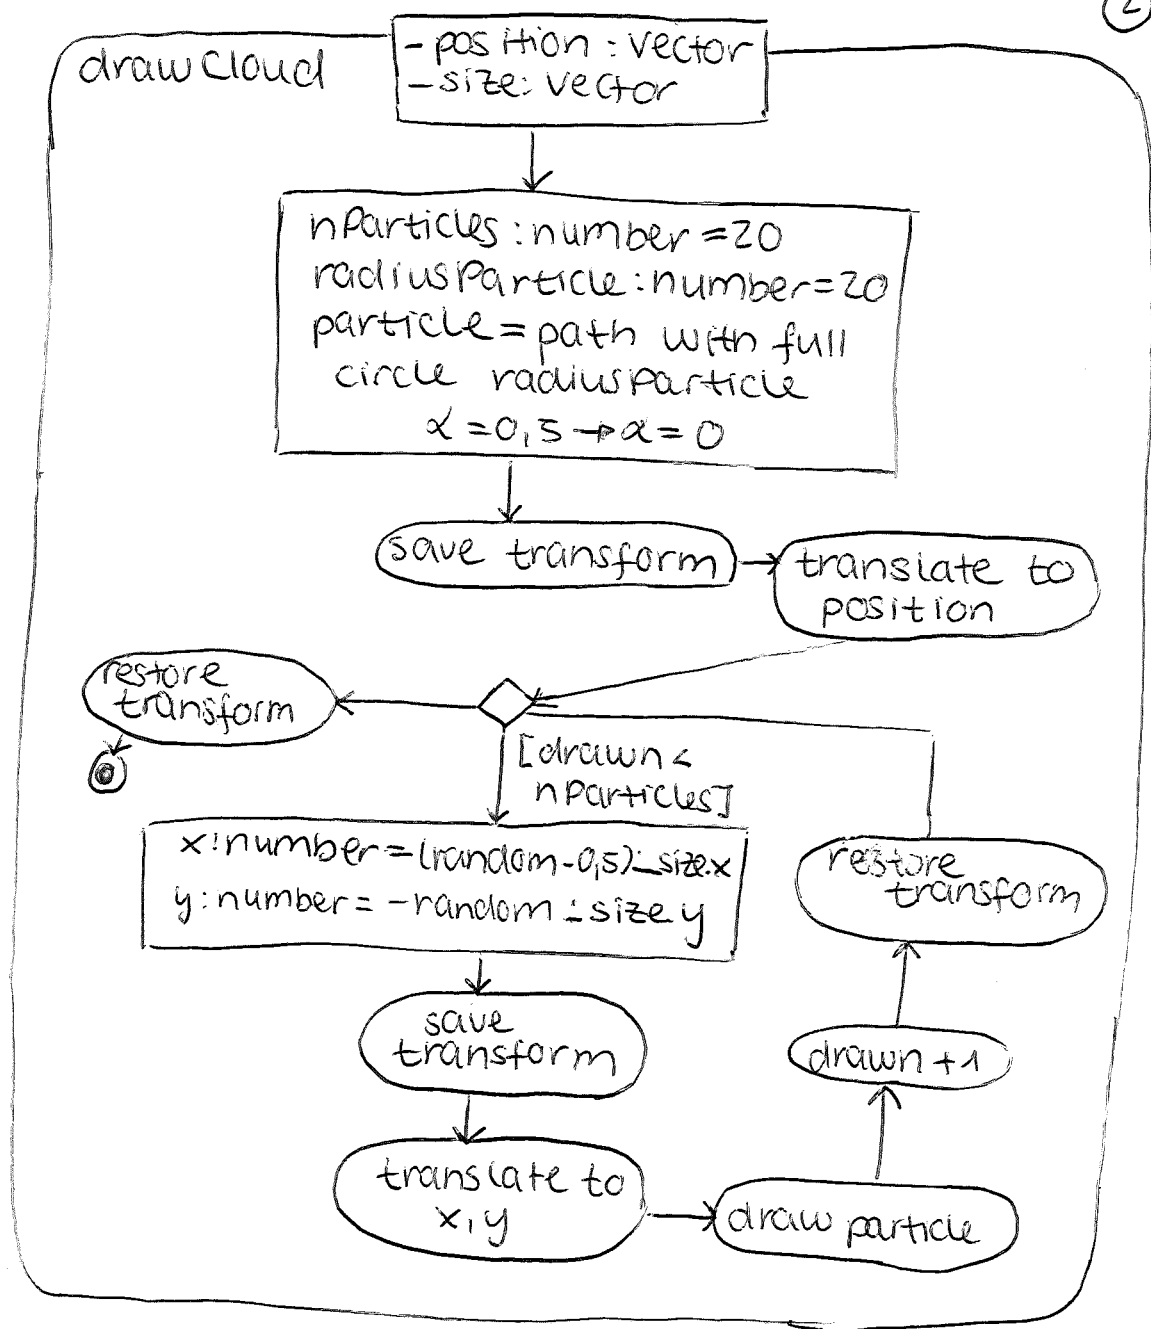 2
drawCloud
- position : vector
- size: vector
nParticles : number = 20
radiusParticle : number = 20
particle = path with full
circle radiusParticle
α = 0,5 → α = 0
save transform
translate to
position
restore
transform
[drawn <
nParticles]
x: number = (random - 0,5) · _size.x
y: number = - random · _size.y
restore
transform
save
transform
drawn + 1
translate to
x, y
draw particle